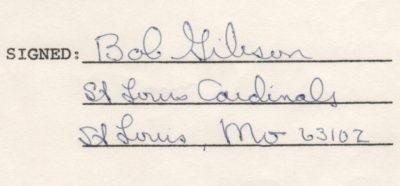 SIGNED: Bob Gibson
St Louis Cardinals
St Louis, Mo 63102